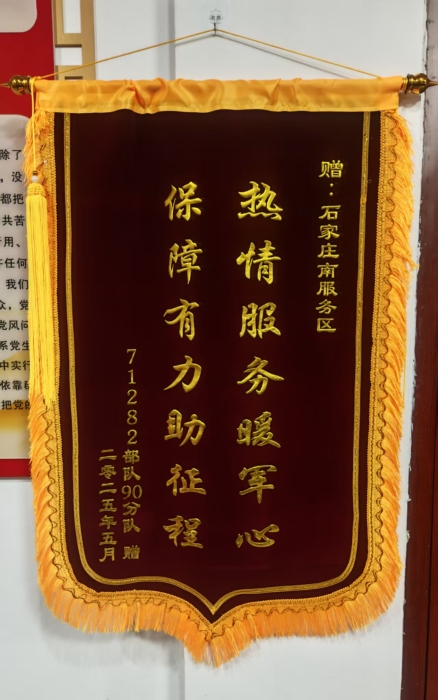 赠：石家庄南服务区
热情服务暖军心
保障有力助征程
71282部队90分队 赠
二零二五年五月
除了
，没
都把
共苦
行用、
在任何
我们
众，
党风问
系党生
中实行
依靠群
把党的